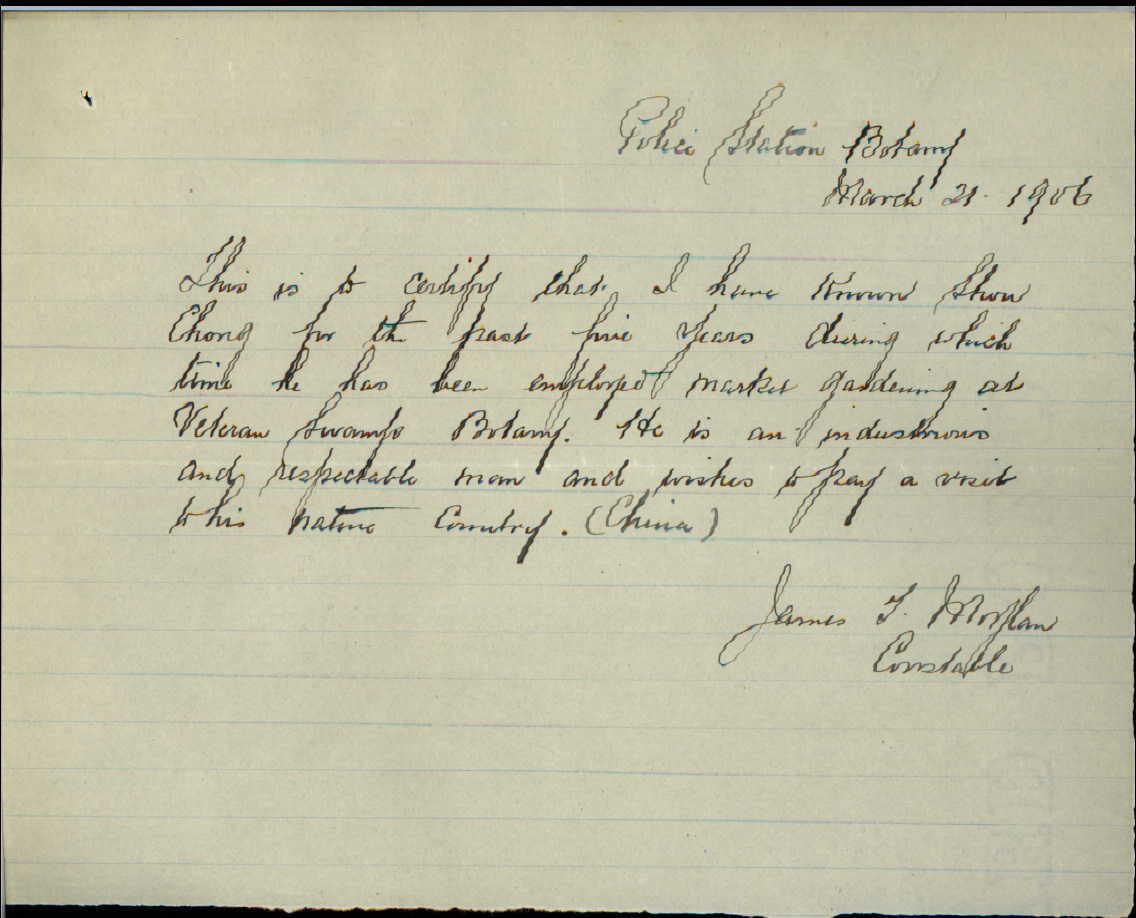 Police Station Botany
March 21. 1906
This is to certify that I have Known Shou
Chong for the past five Years during which
time he has been employed market gardening at
Veteran Swamps Botany. He is an industrious
and respectable man and wishes to pay a visit
to his native Country. (China)
James T.
Constable